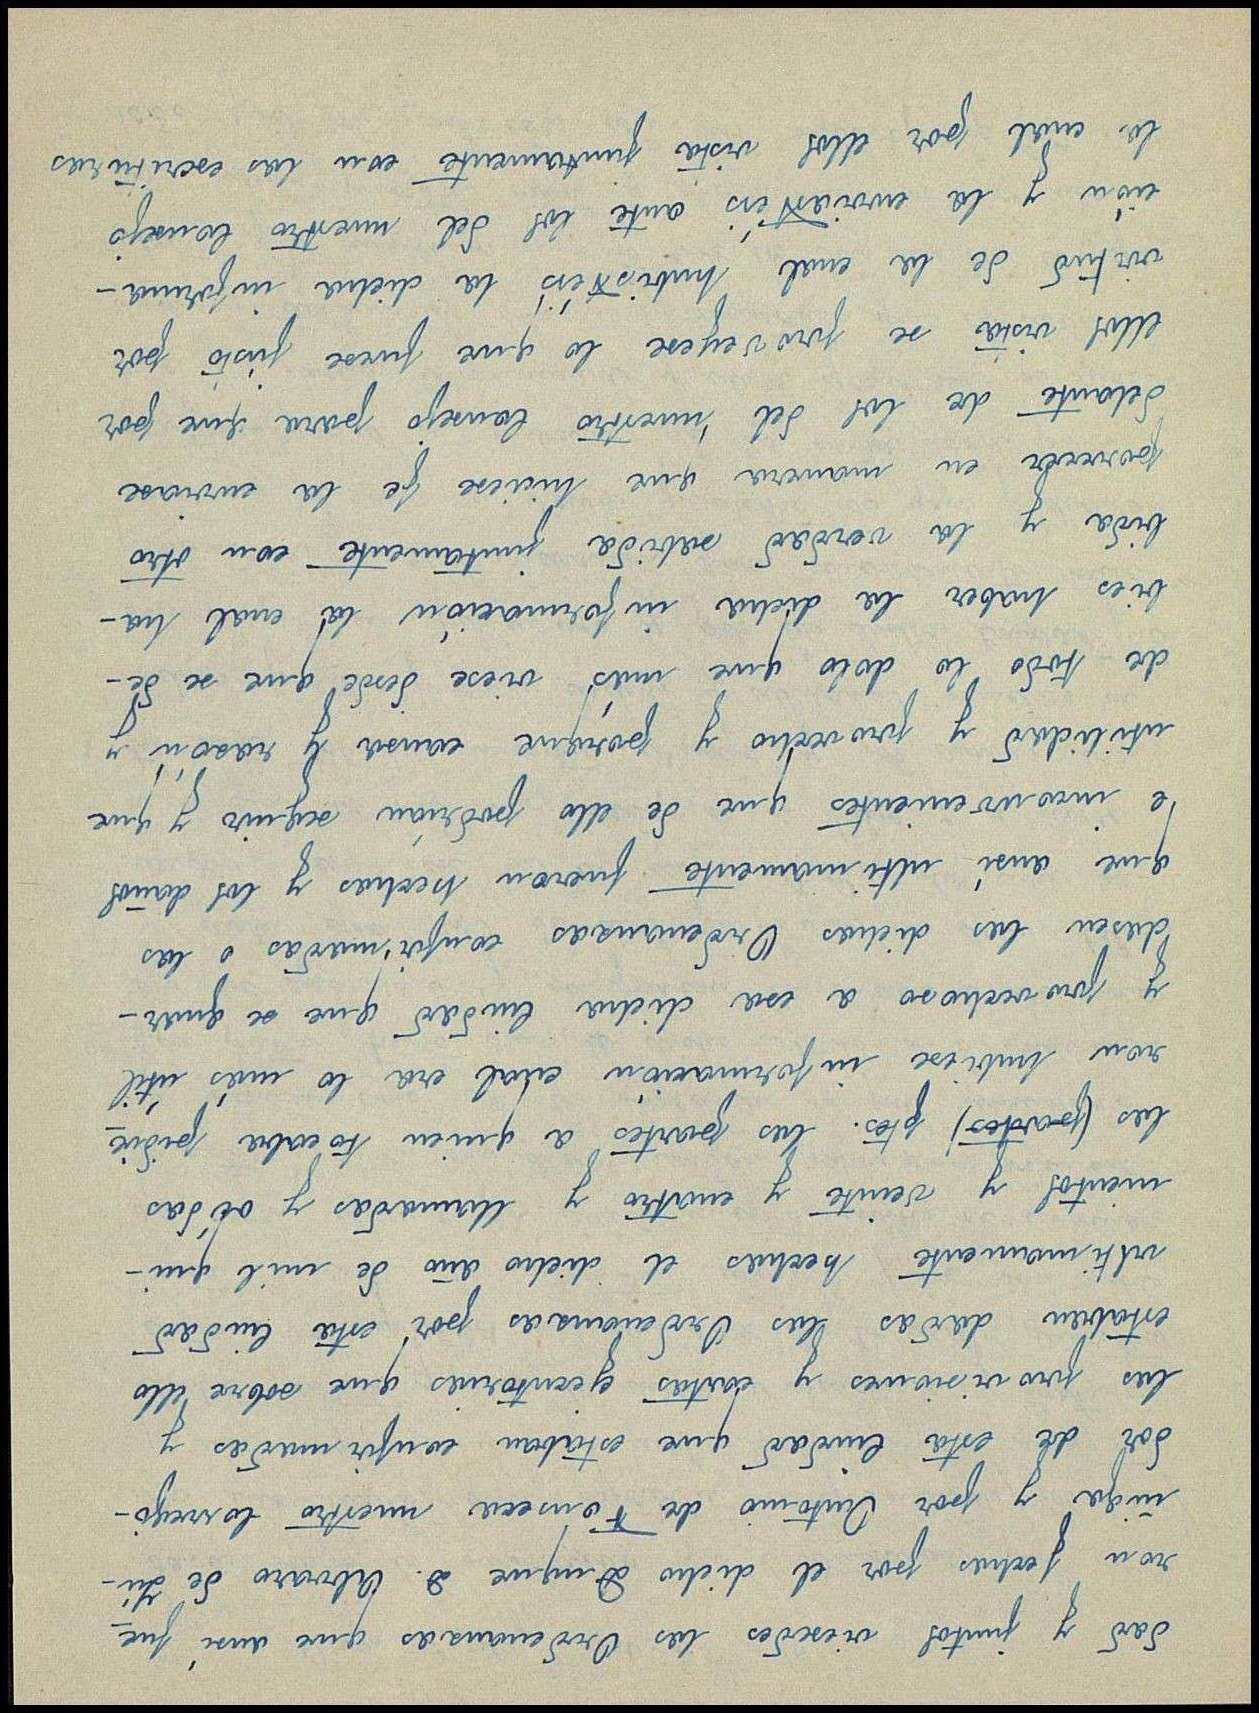 dad y juntos viesedes las Ordenanzas que ansí fue-
ron fechas por el dicho Duque D. Alvaro de Zú-
ñiga y por Antonio de Fonseca nuestro Corregi-
dor de esta Ciudad que estaban confirmadas y
las provisiones y cartas ejecutorias que sobre ello
estaban dadas e las Ordenanzas por esta Ciudad
ultimamente hechas el dicho año de mil qui-
nientos y veinte y cuatro y llamadas y oídas
las (partes) ptes. las partes a quien tocaba pidie-
ron hubiese información cual era lo más útil
y provechoso a esa dicha Ciudad que se guar-
dasen las dichas Ordenanzas confirmadas o las
que ansí ultimamente fueron hechas y los daños
é inconvenientes que de ello podrían seguir y que
utilidad y provecho y porque causa y razon y
de todo lo doto que más viese desde que se de-
bies haber la dicha información la cual ha-
bida y la verdad sabida juntamente con otro
parecer en manera que hiciese fe la enviase
delante de los del nuestro Consejo para que por
ellos vista se proveyese lo que fuese justo por
virtud de la cual hubisteis la dicha informa-
ción y la enviasteis ante los del nuestro Consejo
la cual por ellos vista juntamente con las escrituras